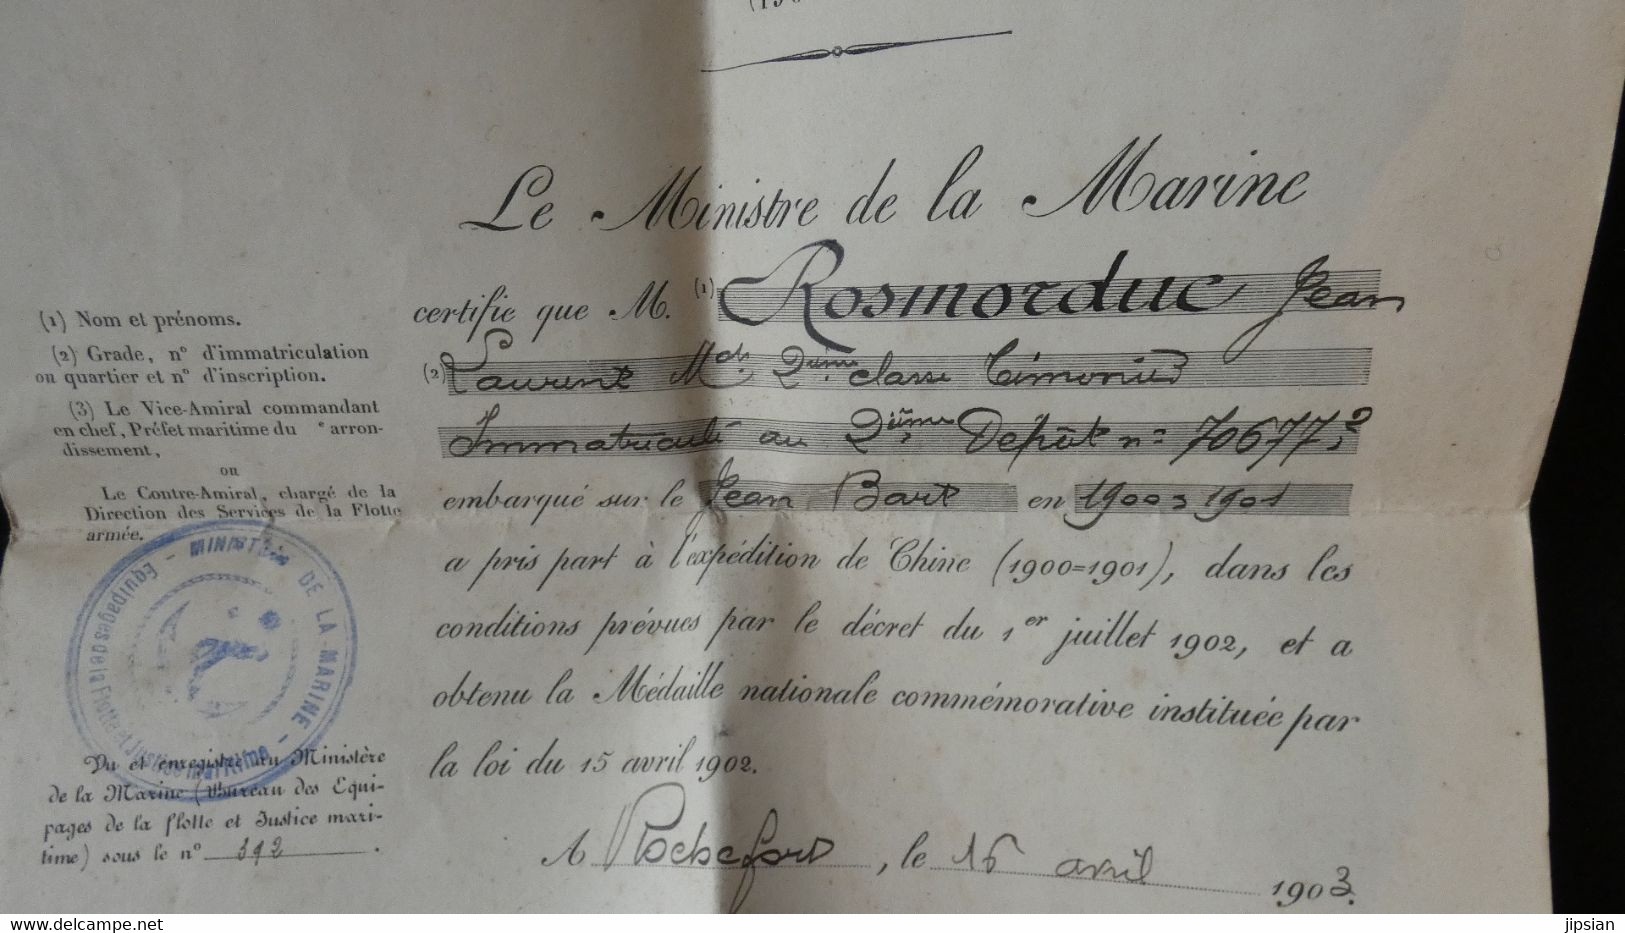 (190
Le Ministre de la Marine
certifie que M. (1) Rosmorduc Jean
(2) Laurent Md. 2ème classe Timonier
Immatriculé au 2ème Dépôt n° 70677.2
embarqué sur le Jean Bart en 1900=1901
a pris part à l'expédition de Chine (1900=1901), dans les
conditions prévues par le décret du 1er juillet 1902, et a
obtenu la Médaille nationale commémorative instituée par
la loi du 15 avril 1902.
A Rochefort, le 16 avril 1903.
(1) Nom et prénoms.
(2) Grade, n° d'immatriculation
ou quartier et n° d'inscription.
(3) Le Vice-Amiral commandant
en chef, Préfet maritime du e arron-
dissement,
ou
Le Contre-Amiral, chargé de la
Direction des Services de la Flotte
armée.
MINISTÈRE DE LA MARINE
Equipages de la Flotte et Justice maritime
Vu et enregistré au Ministère
de la Marine (Bureau des Equi-
pages de la flotte et Justice mari-
time) sous le n° 392.
www.delcampe.net
jipsian